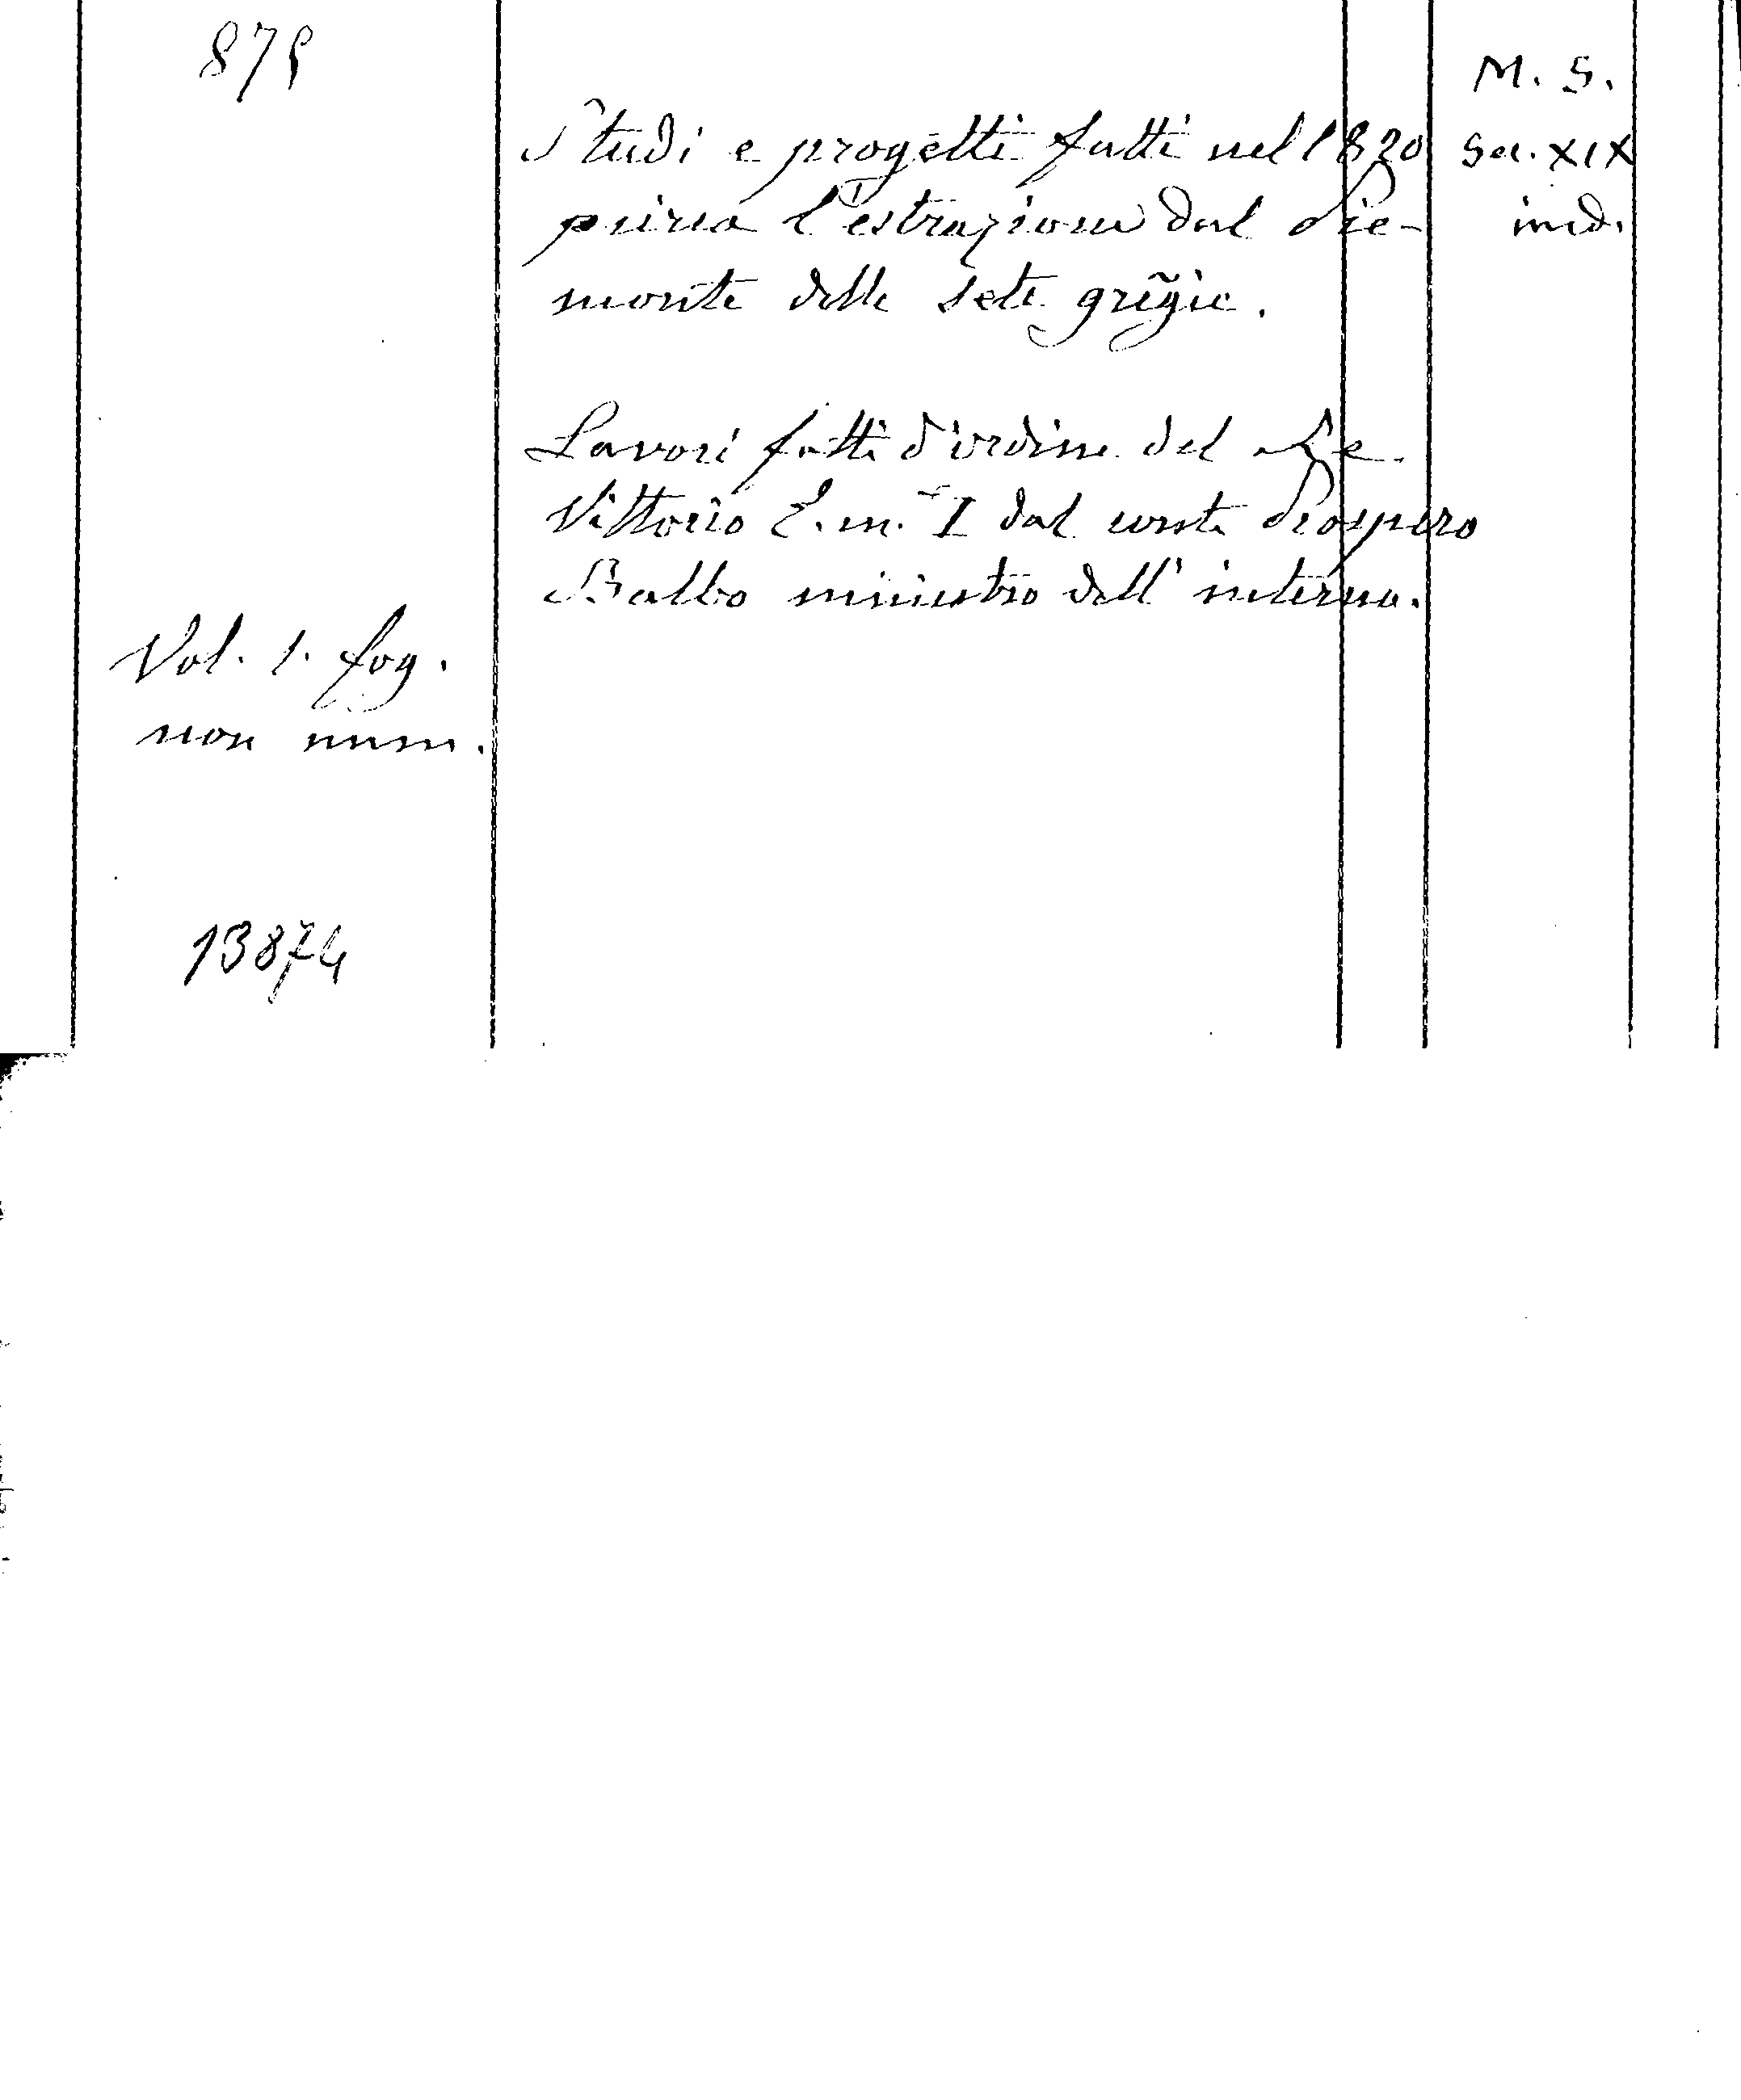 875
M. S.
Studi e progetti fatti nel 1820
Sec. XIX
circa l'estrazione dal Pie-
ined.
monte delle sete gregie.
Lavori fatti d'ordine del Re
Vittorio E. m. I dal conte Prospero
Balbo ministro dell' interno.
Vol. 1. fog.
non num.
13874